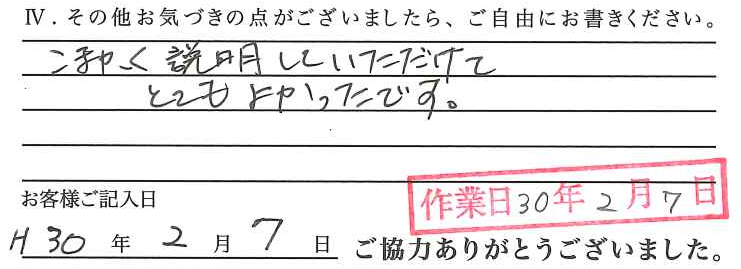 Ⅳ．その他お気づきの点がございましたら、ご自由にお書きください。
こまかく説明していただけて
とてもよかったです。
お客様ご記入日
作業日30年2月7日
H30年2月7日 ご協力ありがとうございました。